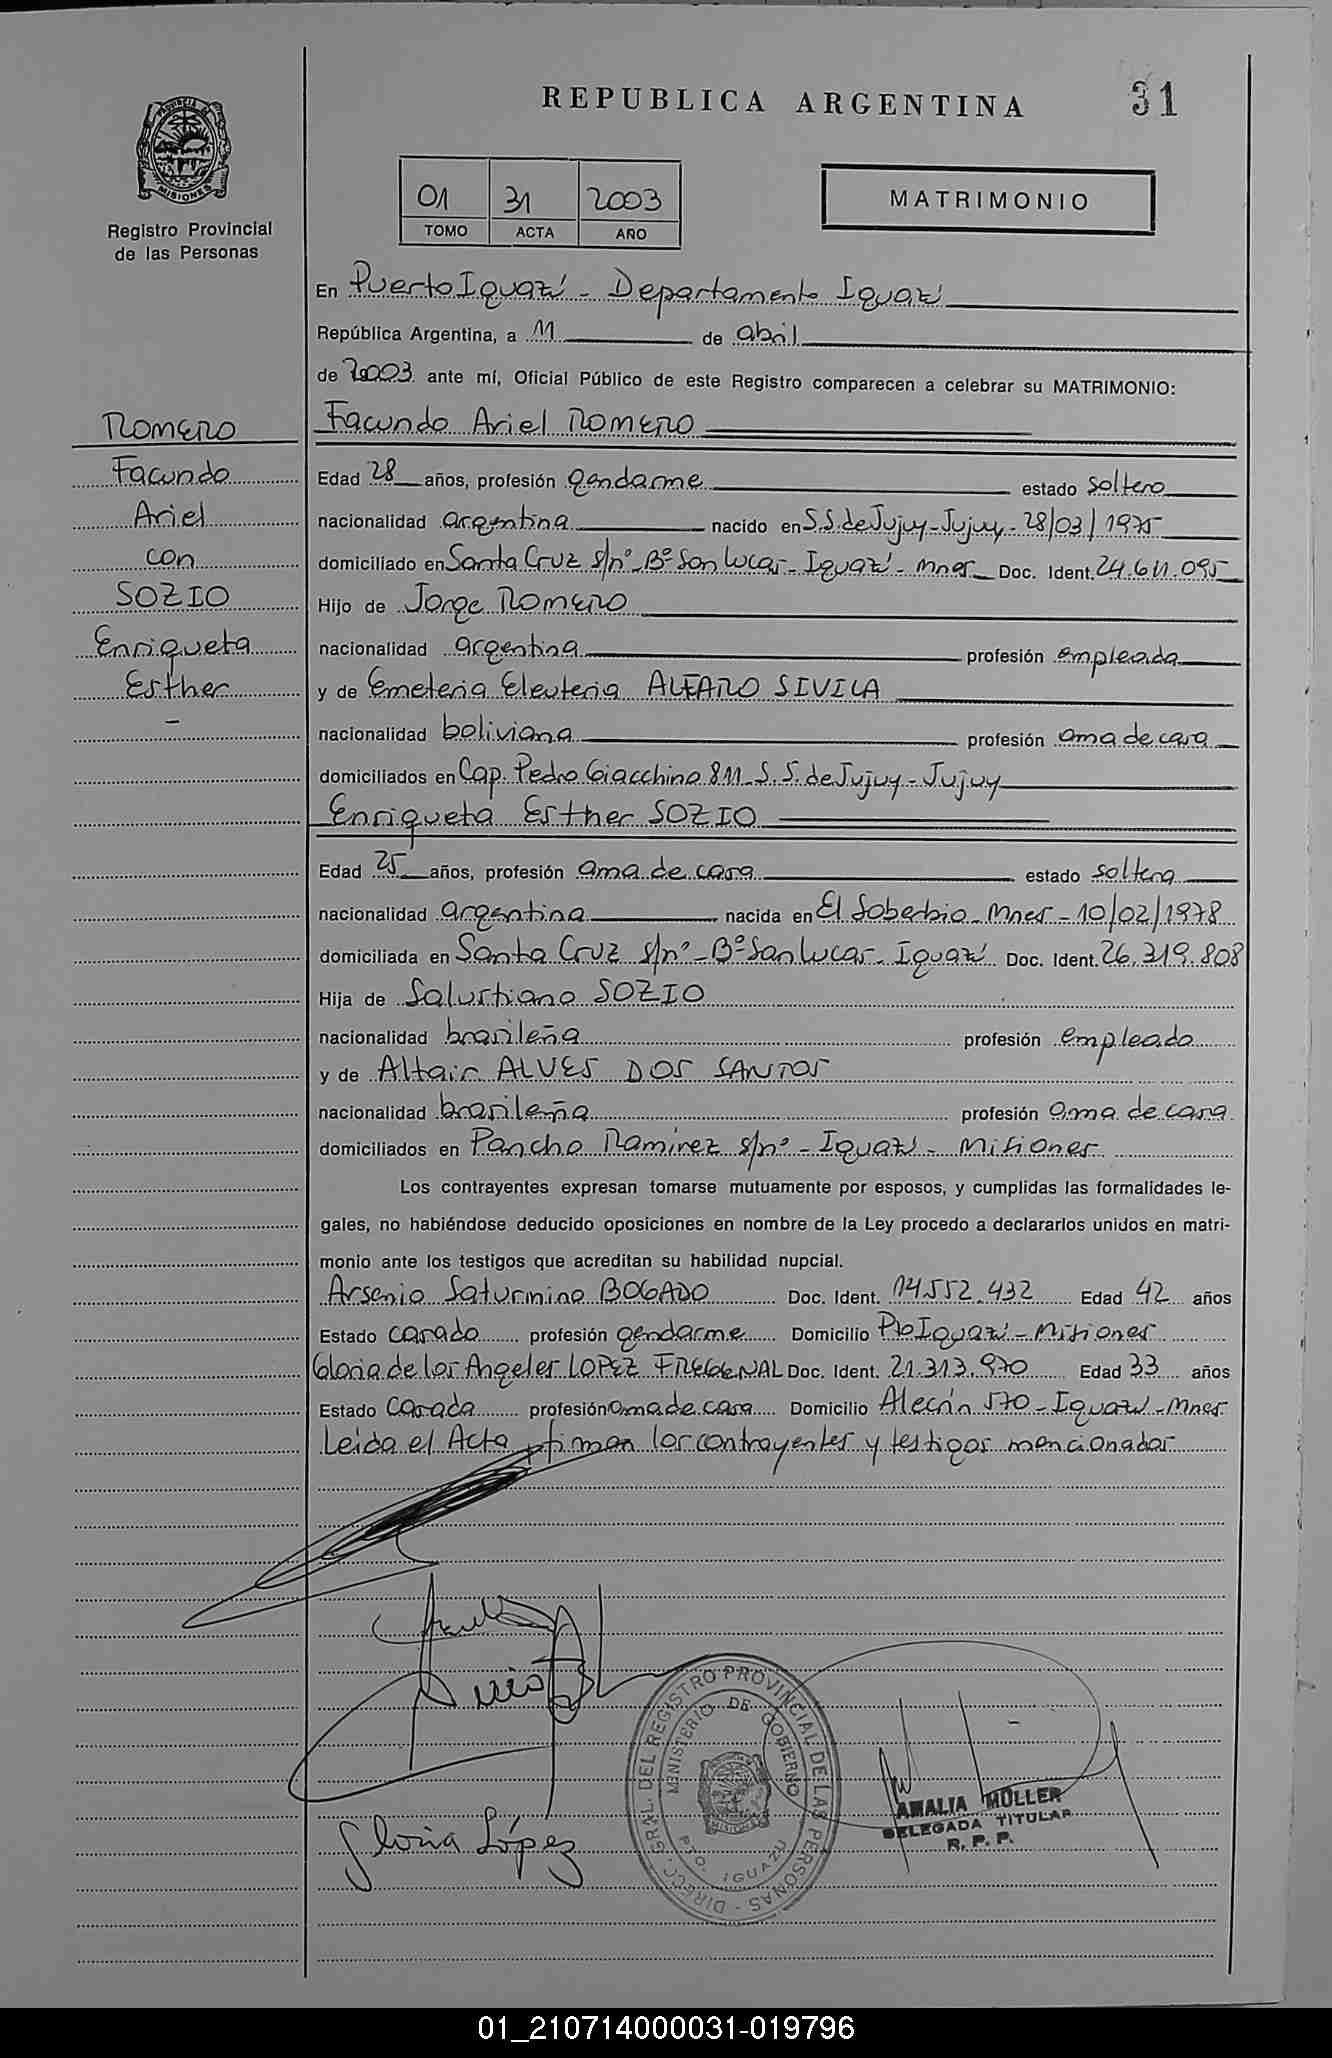 REPUBLICA ARGENTINA
31
PROVINCIA DE
MISIONES
Registro Provincial
de las Personas
01 31 2003
TOMO ACTA AÑO
MATRIMONIO
En Puerto Iguazú - Departamento Iguazú
República Argentina, a 11 de abril
de 2003 ante mí, Oficial Público de este Registro comparecen a celebrar su MATRIMONIO:
ROMERO
Facundo
Ariel
con
SOZIO
Enriqueta
Esther
-
Facundo Ariel ROMERO
Edad 28 años, profesión gendarme estado soltero
nacionalidad argentina nacido en S.S. de Jujuy - Jujuy - 28/03/1975
domiciliado en Santa Cruz s/nº - Bº San Lucas - Iguazú - Mnes Doc. Ident. 24.611.095
Hijo de Jorge ROMERO
nacionalidad argentina profesión empleada
y de Emeteria Eleuteria ALFARO SIVILA
nacionalidad boliviana profesión ama de casa
domiciliados en Cap. Pedro Giacchino 811 - S.S. de Jujuy - Jujuy
Enriqueta Esther SOZIO
Edad 25 años, profesión ama de casa estado soltera
nacionalidad argentina nacida en El Soberbio - Mnes - 10/02/1978
domiciliada en Santa Cruz s/nº - Bº San Lucas - Iguazú Doc. Ident. 26.319.808
Hija de Salustiano SOZIO
nacionalidad brasileña profesión empleado
y de Altair ALVES DOS SANTOS
nacionalidad brasileña profesión ama de casa
domiciliados en Pancho Ramirez s/nº - Iguazú - Misiones
Los contrayentes expresan tomarse mutuamente por esposos, y cumplidas las formalidades le-
gales, no habiéndose deducido oposiciones en nombre de la Ley procedo a declararlos unidos en matri-
monio ante los testigos que acreditan su habilidad nupcial.
Arsenio Saturnino BOGADO Doc. Ident. 14.552.432 Edad 42 años
Estado casado profesión gendarme Domicilio Pto Iguazú - Misiones
Gloria de los Angeles LOPEZ FREGENAL Doc. Ident. 21.313.970 Edad 33 años
Estado casada profesión ama de casa Domicilio Alecrín 570 - Iguazú - Mnes
Leida el Acta, firman los contrayentes y testigos mencionados
Gloria López
DIRECC. GRAL. DEL REGISTRO PROVINCIAL DE LAS PERSONAS -
MINISTERIO DE GOBIERNO
PTO. IGUAZU
MISIONES
AMALIA MÜLLER
DELEGADA TITULAR
R. P. P.
01_210714000031-019796